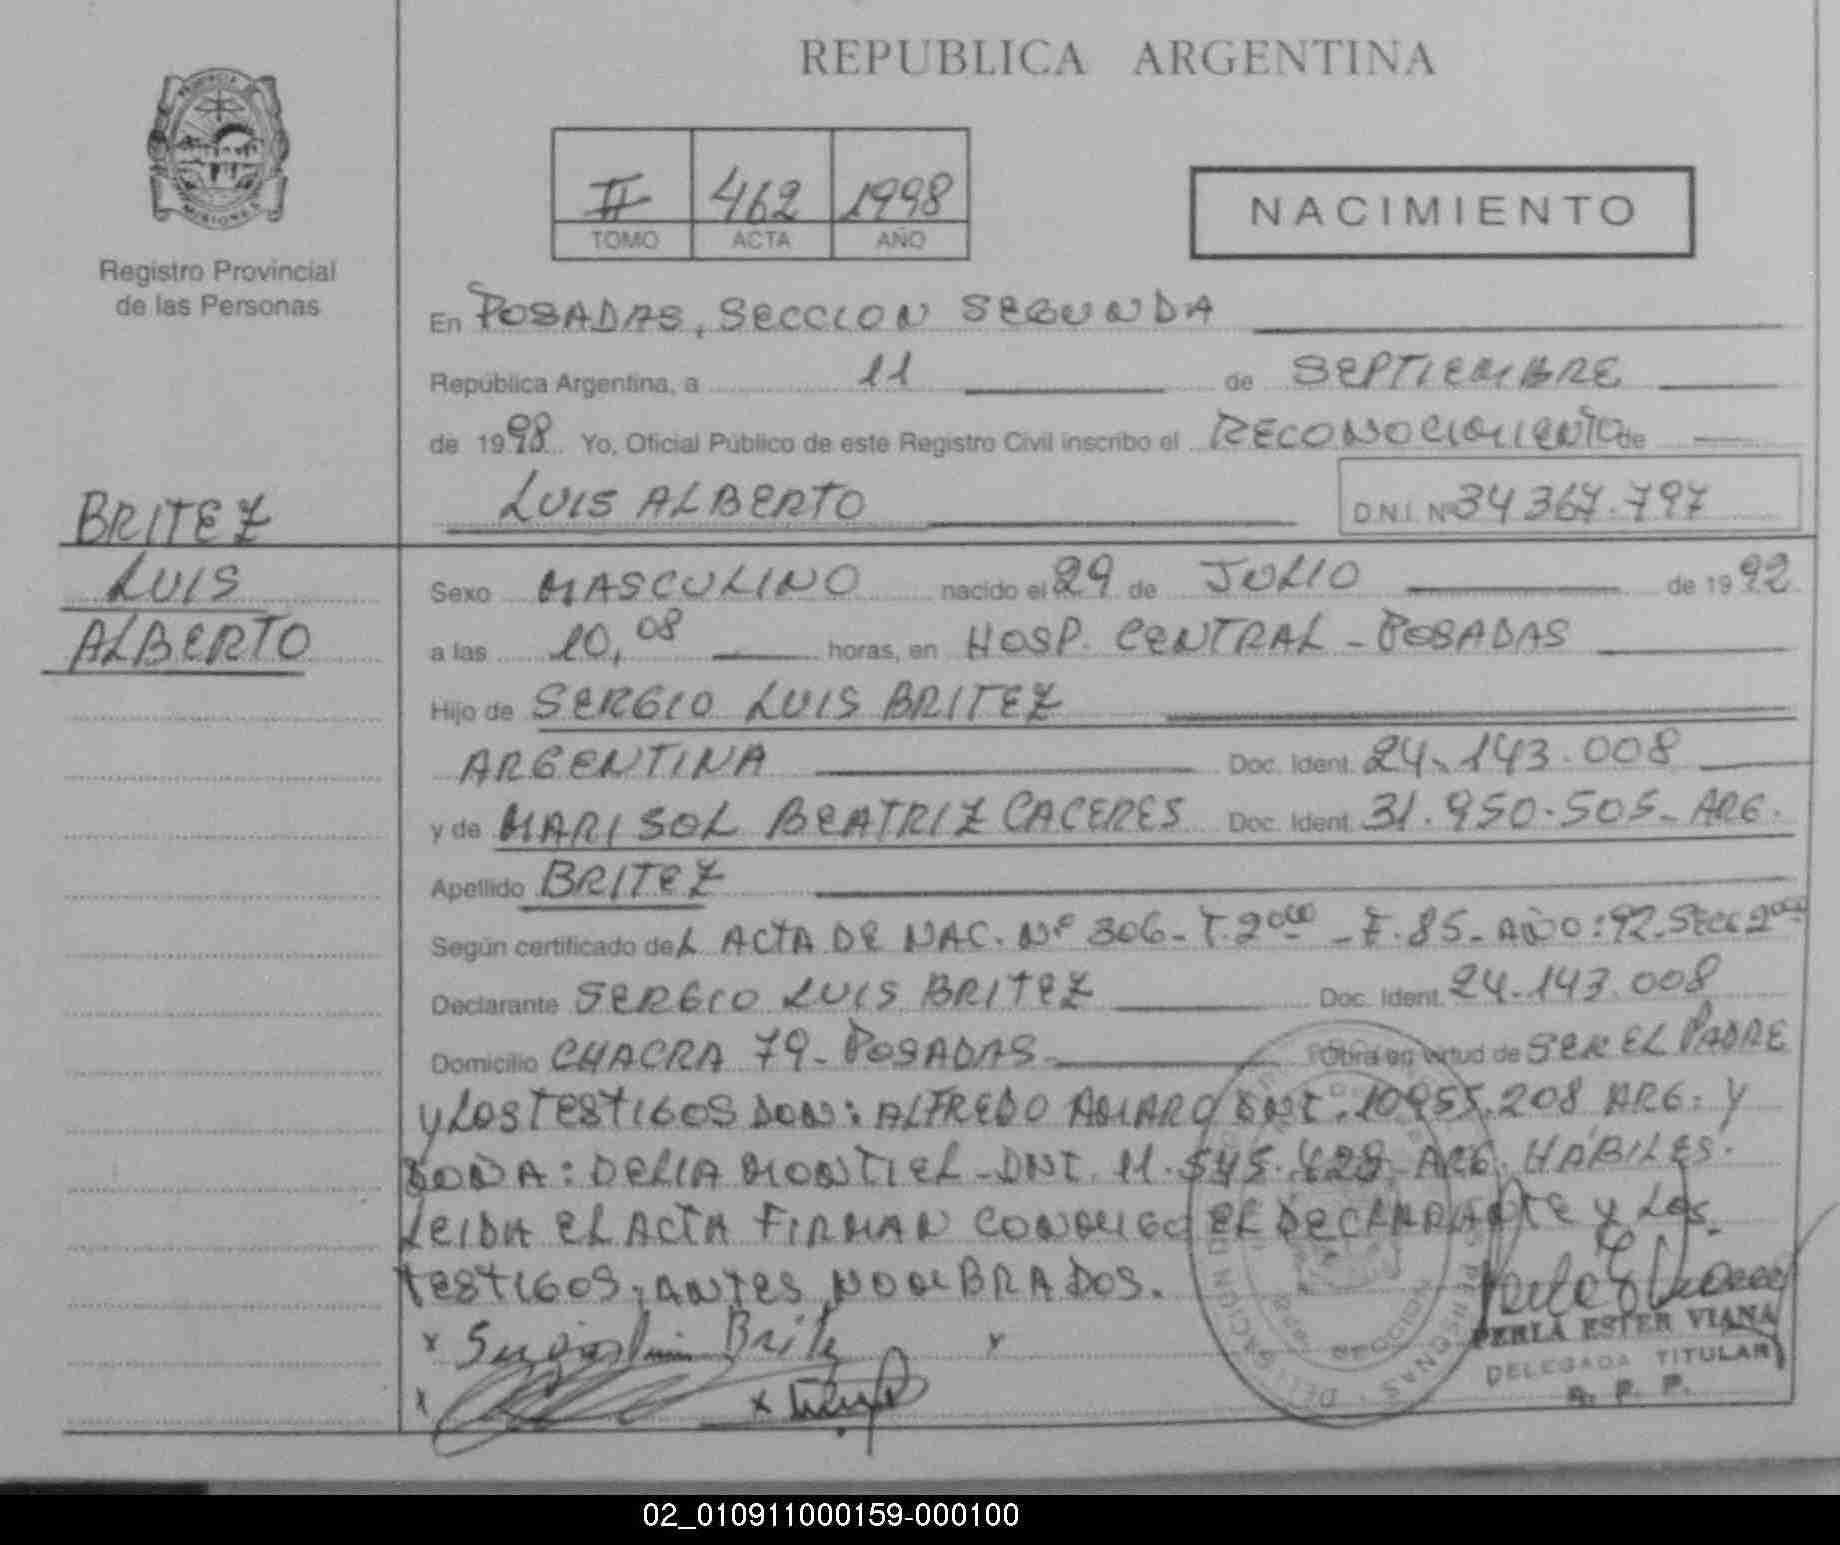 REPUBLICA ARGENTINA
PROVINCIA
MISIONES
Registro Provincial
de las Personas
II 462 1998
TOMO ACTA AÑO
NACIMIENTO
En POSADAS, SECCION SEGUNDA
República Argentina, a 11 de SEPTIEMBRE
de 1998 Yo, Oficial Público de este Registro Civil inscribo el RECONOCIMIENTO de
LUIS ALBERTO D.N.I. Nº 34 367.797
BRITEZ
LUIS
ALBERTO
Sexo MASCULINO nacido el 29 de JULIO de 1992
a las 10,08 horas, en HOSP. CENTRAL - POSADAS
Hijo de SERGIO LUIS BRITEZ
ARGENTINA Doc. Ident. 24.143.008
y de MARISOL BEATRIZ CACERES Doc. Ident. 31.950.505- ARG.
Apellido BRITEZ
Según certificado del ACTA DE NAC. Nº 306- T. 2º - F. 85- AÑO: 92- SECC 2
Declarante SERGIO LUIS BRITEZ Doc. Ident. 24.143.008
Domicilio CHACRA 79- POSADAS- Obra en virtud de SER EL PADRE
y LOS TESTIGOS DON: ALFREDO AMARO DNI. 10955.208 ARG: Y
DOÑA: DELIA MONTIEL- DNI. 11.545.428- ARG. HÁBILES.
LEIDA EL ACTA FIRMAN CONMIGO EL DECLARANTE y LOS
TESTIGOS, ANTES NOMBRADOS.
x Britez x
x x
PERLA ESTER VIANA
DELEGADA TITULAR
R. P. P.
02_010911000159-000100